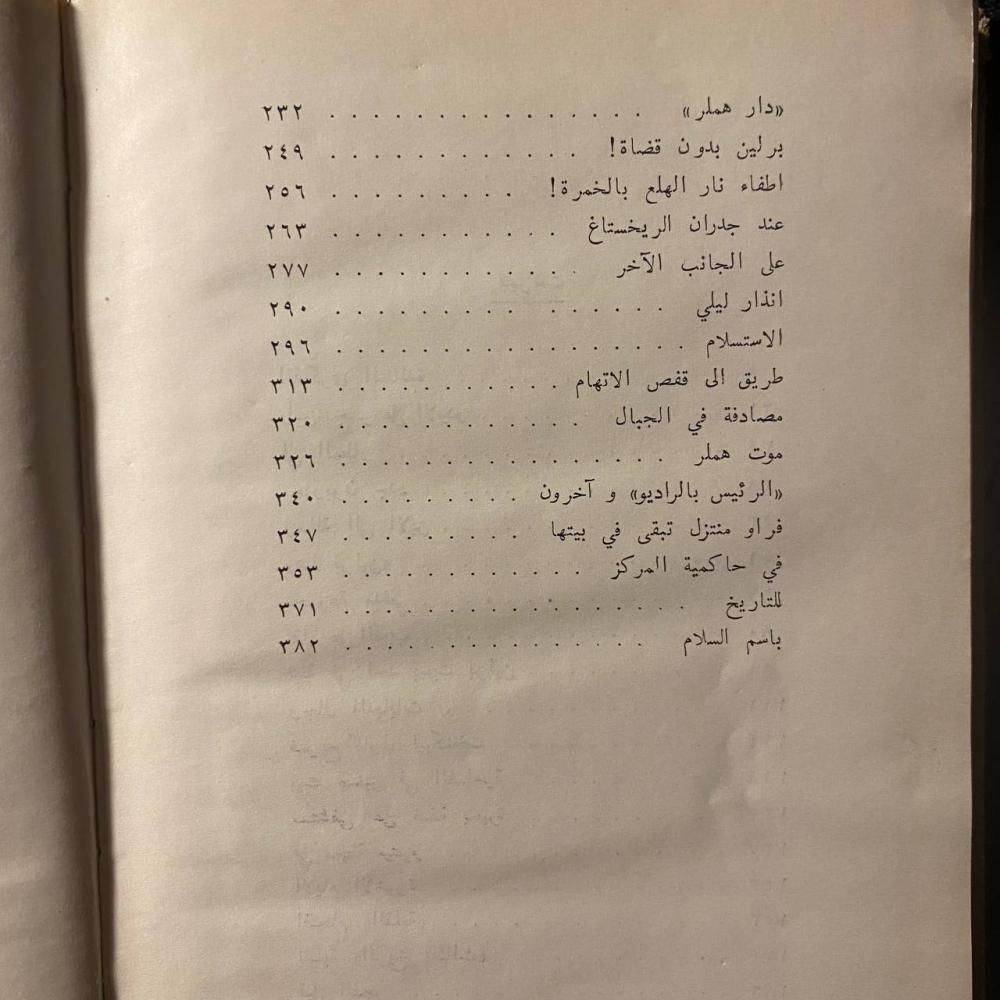 «دار هملر» . . . . . . . . . . . . . . . ٢٣٢
برلين بدون قضاة! . . . . . . . . . . . . . ٢٤٩
اطفاء نار الهلع بالخمرة! . . . . . . . . . . ٢٥٦
عند جدران الريخستاغ . . . . . . . . . . . ٢٦٣
على الجانب الآخر . . . . . . . . . . . . ٢٧٧
انذار ليلي . . . . . . . . . . . . . . ٢٩٠
الاستسلام . . . . . . . . . . . . . . . ٢٩٦
طريق الى قفص الاتهام . . . . . . . . . . . ٣١٣
مصادفة في الجبال . . . . . . . . . . . . ٣٢٠
موت هملر . . . . . . . . . . . . . . ٣٢٦
«الرئيس بالراديو» و آخرون . . . . . . . . . ٣٤٠
فراو منتزل تبقى في بيتها . . . . . . . . . ٣٤٧
في حاكمية المركز . . . . . . . . . . . . ٣٥٣
للتاريخ . . . . . . . . . . . . . . . ٣٧١
باسم السلام . . . . . . . . . . . . . . ٣٨٢